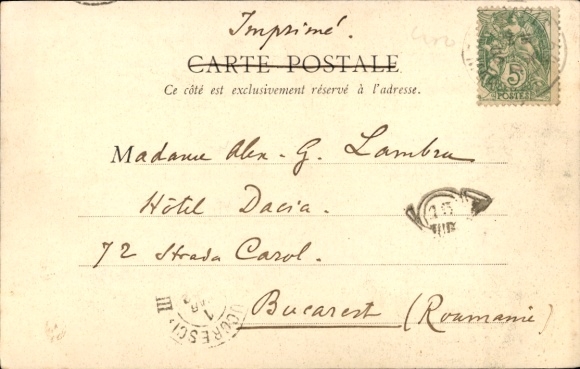 Imprimé.
CARTE POSTALE
Ce côté est exclusivement réservé à l'adresse.
5
POSTES
Madame Alex. G. Lambru
Hôtel Dacia.
72 Strada Carol.
Bucarest (Roumanie)
BUCURESCI.
III